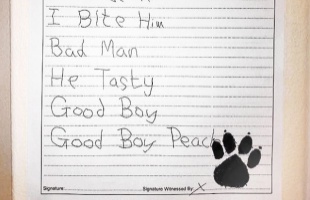 I BIte HIm
Bad Man
He Tasty
Good Boy
Good Boy Peach
Signature: Signature Witnessed By: X